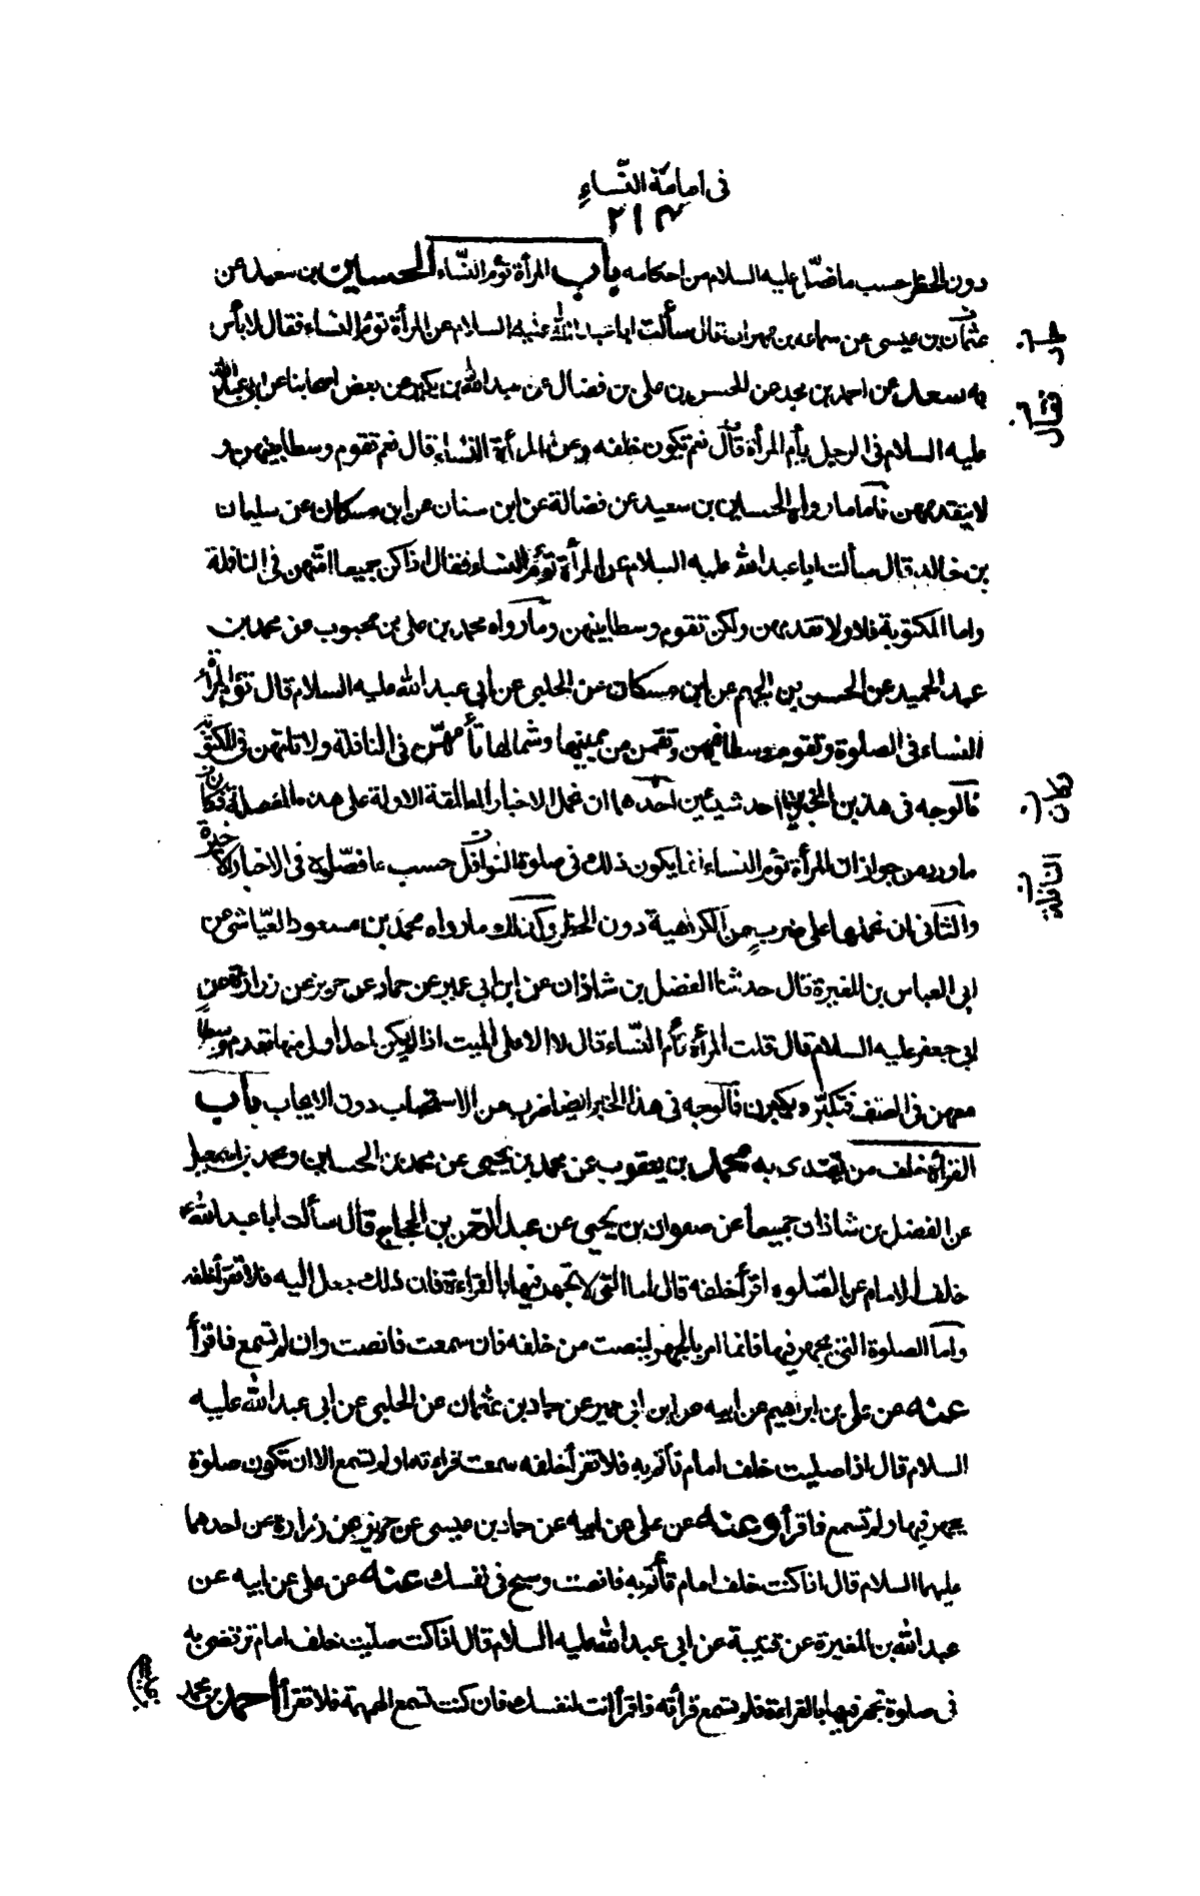 فى امامة النّساءِ
٢١٣
دون الحظر حسب ما فصّل عليه السلام من احكامه باب المرأة تؤم النّساء الحسين بن سعيد عن
عثمان بن عيسى عن سماعه بن مهران قال سألت ابا عبد الله عليه السلام عن المرأة تؤم النساء فقال لا بأس
به سعد عن احمد بن محمد عن الحسن بن على بن فضال عن عبد الله بن بكير عن بعض اصحابنا عن ابى عبد الله
عليه السلام فى الرجل يأم المرأة قال نعم تكون خلفه وعن المرأة النساء قال نعم تقوم وسطا بينهن و
لا يتقدمهن فاما ما رواه الحسين بن سعيد عن فضالة عن ابن سنان عن ابن مسكان عن سليمان
بن خالد قال سألت ابا عبد الله عليه السلام عن المرأة تؤم النساء فقال اذا كن جميعا امّتهن فى النافلة
واما المكتوبة فلا ولا تقدمهن ولكن تقوم وسطا بينهن وما رواه محمد بن على بن محبوب عن محمد بن
عبد الحميد عن الحسن بن الجهم عن ابن مسكان عن الحلبى عن أبى عبد الله عليه السلام قال تؤم المرأة
النساء فى الصلوة وتقوم وسطا فيهن وتقمن من يمينها وشمالها تأمهنّ فى النافلة ولا تأمهن فى المكتوبة
فالوجه فى هذين الخبرين احد شيئين احدهما ان نحمل الاخبار المطلقة الاولة على هذه المفصلة فكان
ما ورد من جواز ان المرأة تؤم النساء انما يكون ذلك فى صلوة النوافل حسب ما فصّلوه فى الاخبار الاخيرة
والثانى ان نحملها على ضربٍ من الكراهية دون الحظر وكذلك ما رواه محمد بن مسعود العيّاشى عن
ابى العباس بن المغيرة قال حدثنا الفضل بن شاذان عن ابن ابى عمير عن حماد عن حريز عن زرارة عن
ابى جعفر عليه السلام قال قلت المرأة تأم النّساء قال لا الا على الميت اذا لم يكن احد اولى منها تقدم وسطا
معهن فى الصف فتكبّر ويكبرن فالوجه فى هذا الخبر ايضا ضرب من الاستحباب دون الايجاب باب
القرأة خلف من يقتدى به محمد بن يعقوب عن محمد بن يحيى عن محمد بن الحسين ومحمد بن اسمعيل
عن الفضل بن شاذان جميعا عن صفوان بن يحيى عن عبد الرحمن بن الحجاج قال سألت ابا عبد الله ع
خلف الامام عن الصّلوه اقرأ خلفه قال اما التى لا تجهر فيها بالقراءة فان ذلك جعل اليه فلا تقرأ خلفه
واما الصلوة التى يجهر فيها فانما امر بالجهر لينصت من خلفه فان سمعت فانصت وان لم تسمع فاقرأ
عنه عن على بن ابراهيم عن ابيه عن ابن ابى عمير عن حماد بن عثمان عن الحلبى عن ابى عبد الله عليه
السلام قال اذا صليت خلف امام تأتم به فلا تقرأ خلفه سمعت قراءته او لم تسمع الا ان تكون صلوة
يجهر فيها ولم تسمع فاقرأ وعنه عن على عن ابيه عن حماد بن عيسى عن حريز عن زرارة عن احدهما
عليهما السلام قال اذا كنت خلف امام تأتم به فانصت وسبح فى نفسك عنه عن على عن ابيه عن
عبد الله بن المغيرة عن قتيبة عن ابى عبد الله عليه السلام قال اذا كنت صلّيت خلف امام ترتضى به
فى صلوة تجهر فيها بالقراءة فلم تسمع قرأته فاقرأ انت لنفسك فان كنت تسمع الهمهمة فلا تقرأ احمد بن محمد
فقال ن
فكان ن
النافلة ن